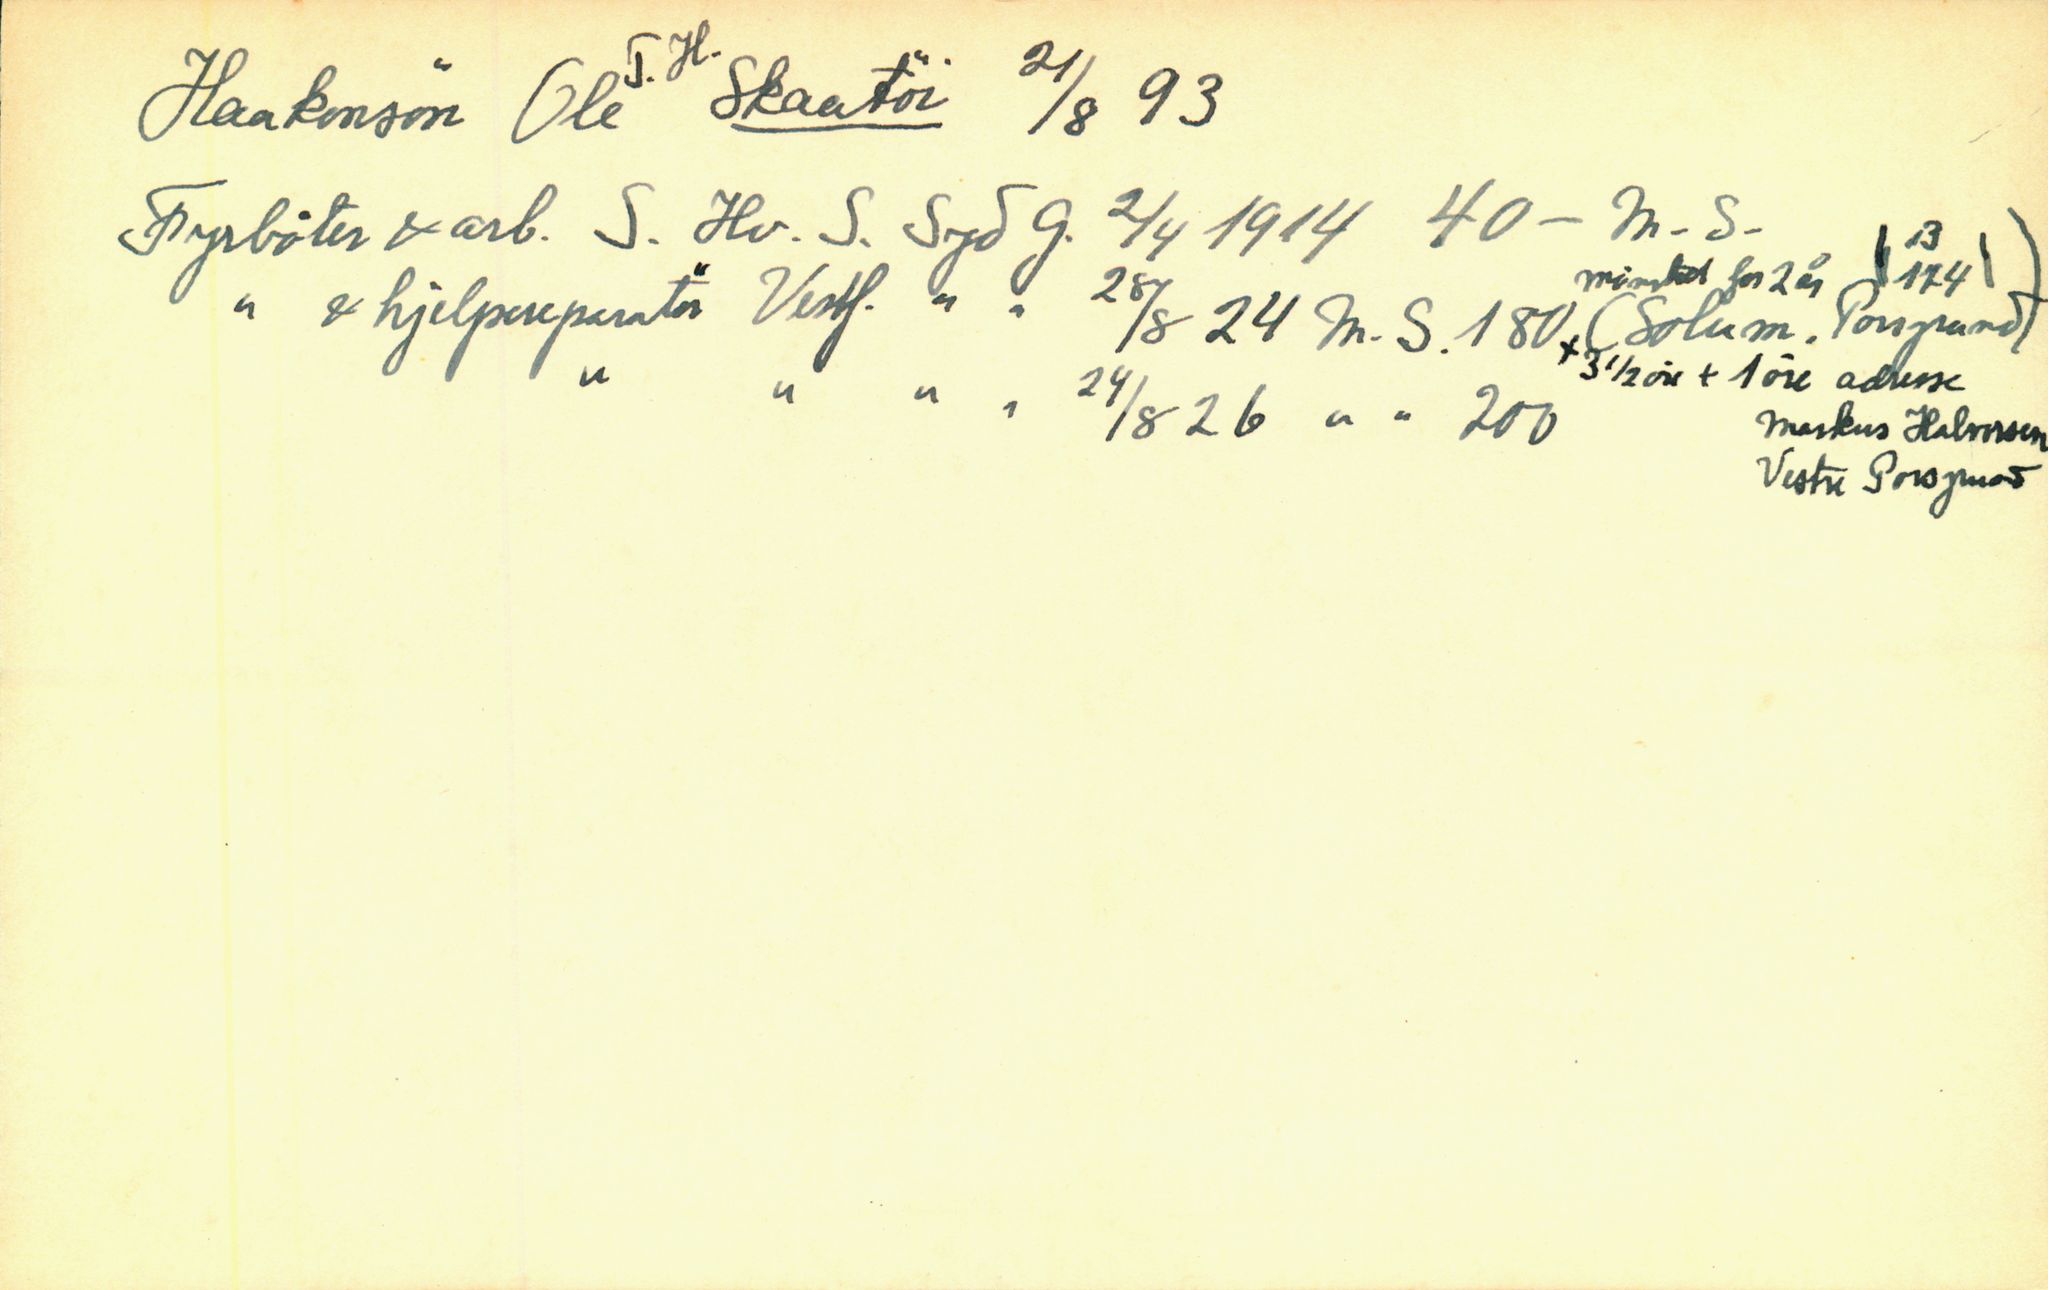 Haakonsön Ole T. H. Skaatöi 21/8 93
Fyrböter & arb. S. Hv. S. Syd G. 2/4 1914 40 – M. S.
" & hjelpereparatör Vestf. " " 28/8 24 M. S. 180 (Solum. Porsgrund)
for 2 år 13 174
+ 3 1/2 öre + 1 öre adresse
" " " " 24/8 26 " " 200
Markus Halvorsen
Vestre Porsgrund